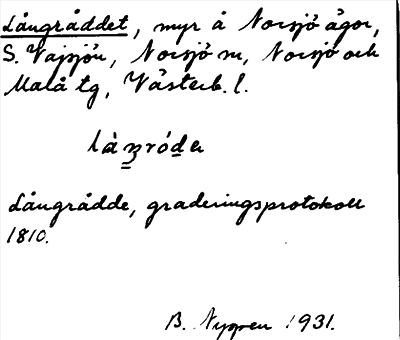 Långråddet, myr å Norsjö ägor,
S. Vajsjön, Norsjö sn, Norsjö och
Malå tg, Västerb. l.
Långrådde, graderingsprotokoll
1810.
B. Nygren 1931.